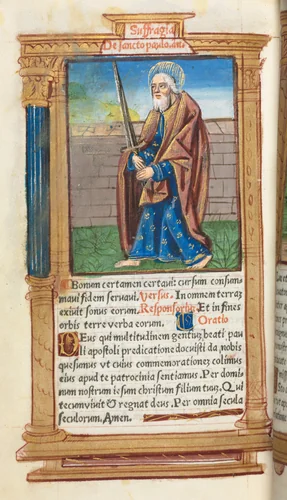 Suffragia
De sancto paulo. añ.
Bonum certamen certaui: cursum consum-
maui fidem seruaui. Versus. In omnem terrã
exiuit sonus eorum. Responsorius. Et in fines
orbis terre verba eorum. Oratio
Deus qui multitudinem gentiuʒ beati pau
li apostoli predicatione docuisti da. nobis
quesumus vt cuius commemorationeʒ colimus
eius apud te patrocinia sentiamus. Per domi-
num nostrum iesum christum filium tuuʒ. Qui
tecum viuit & regnat deus. Per omnia secula
seculorum. Amen.